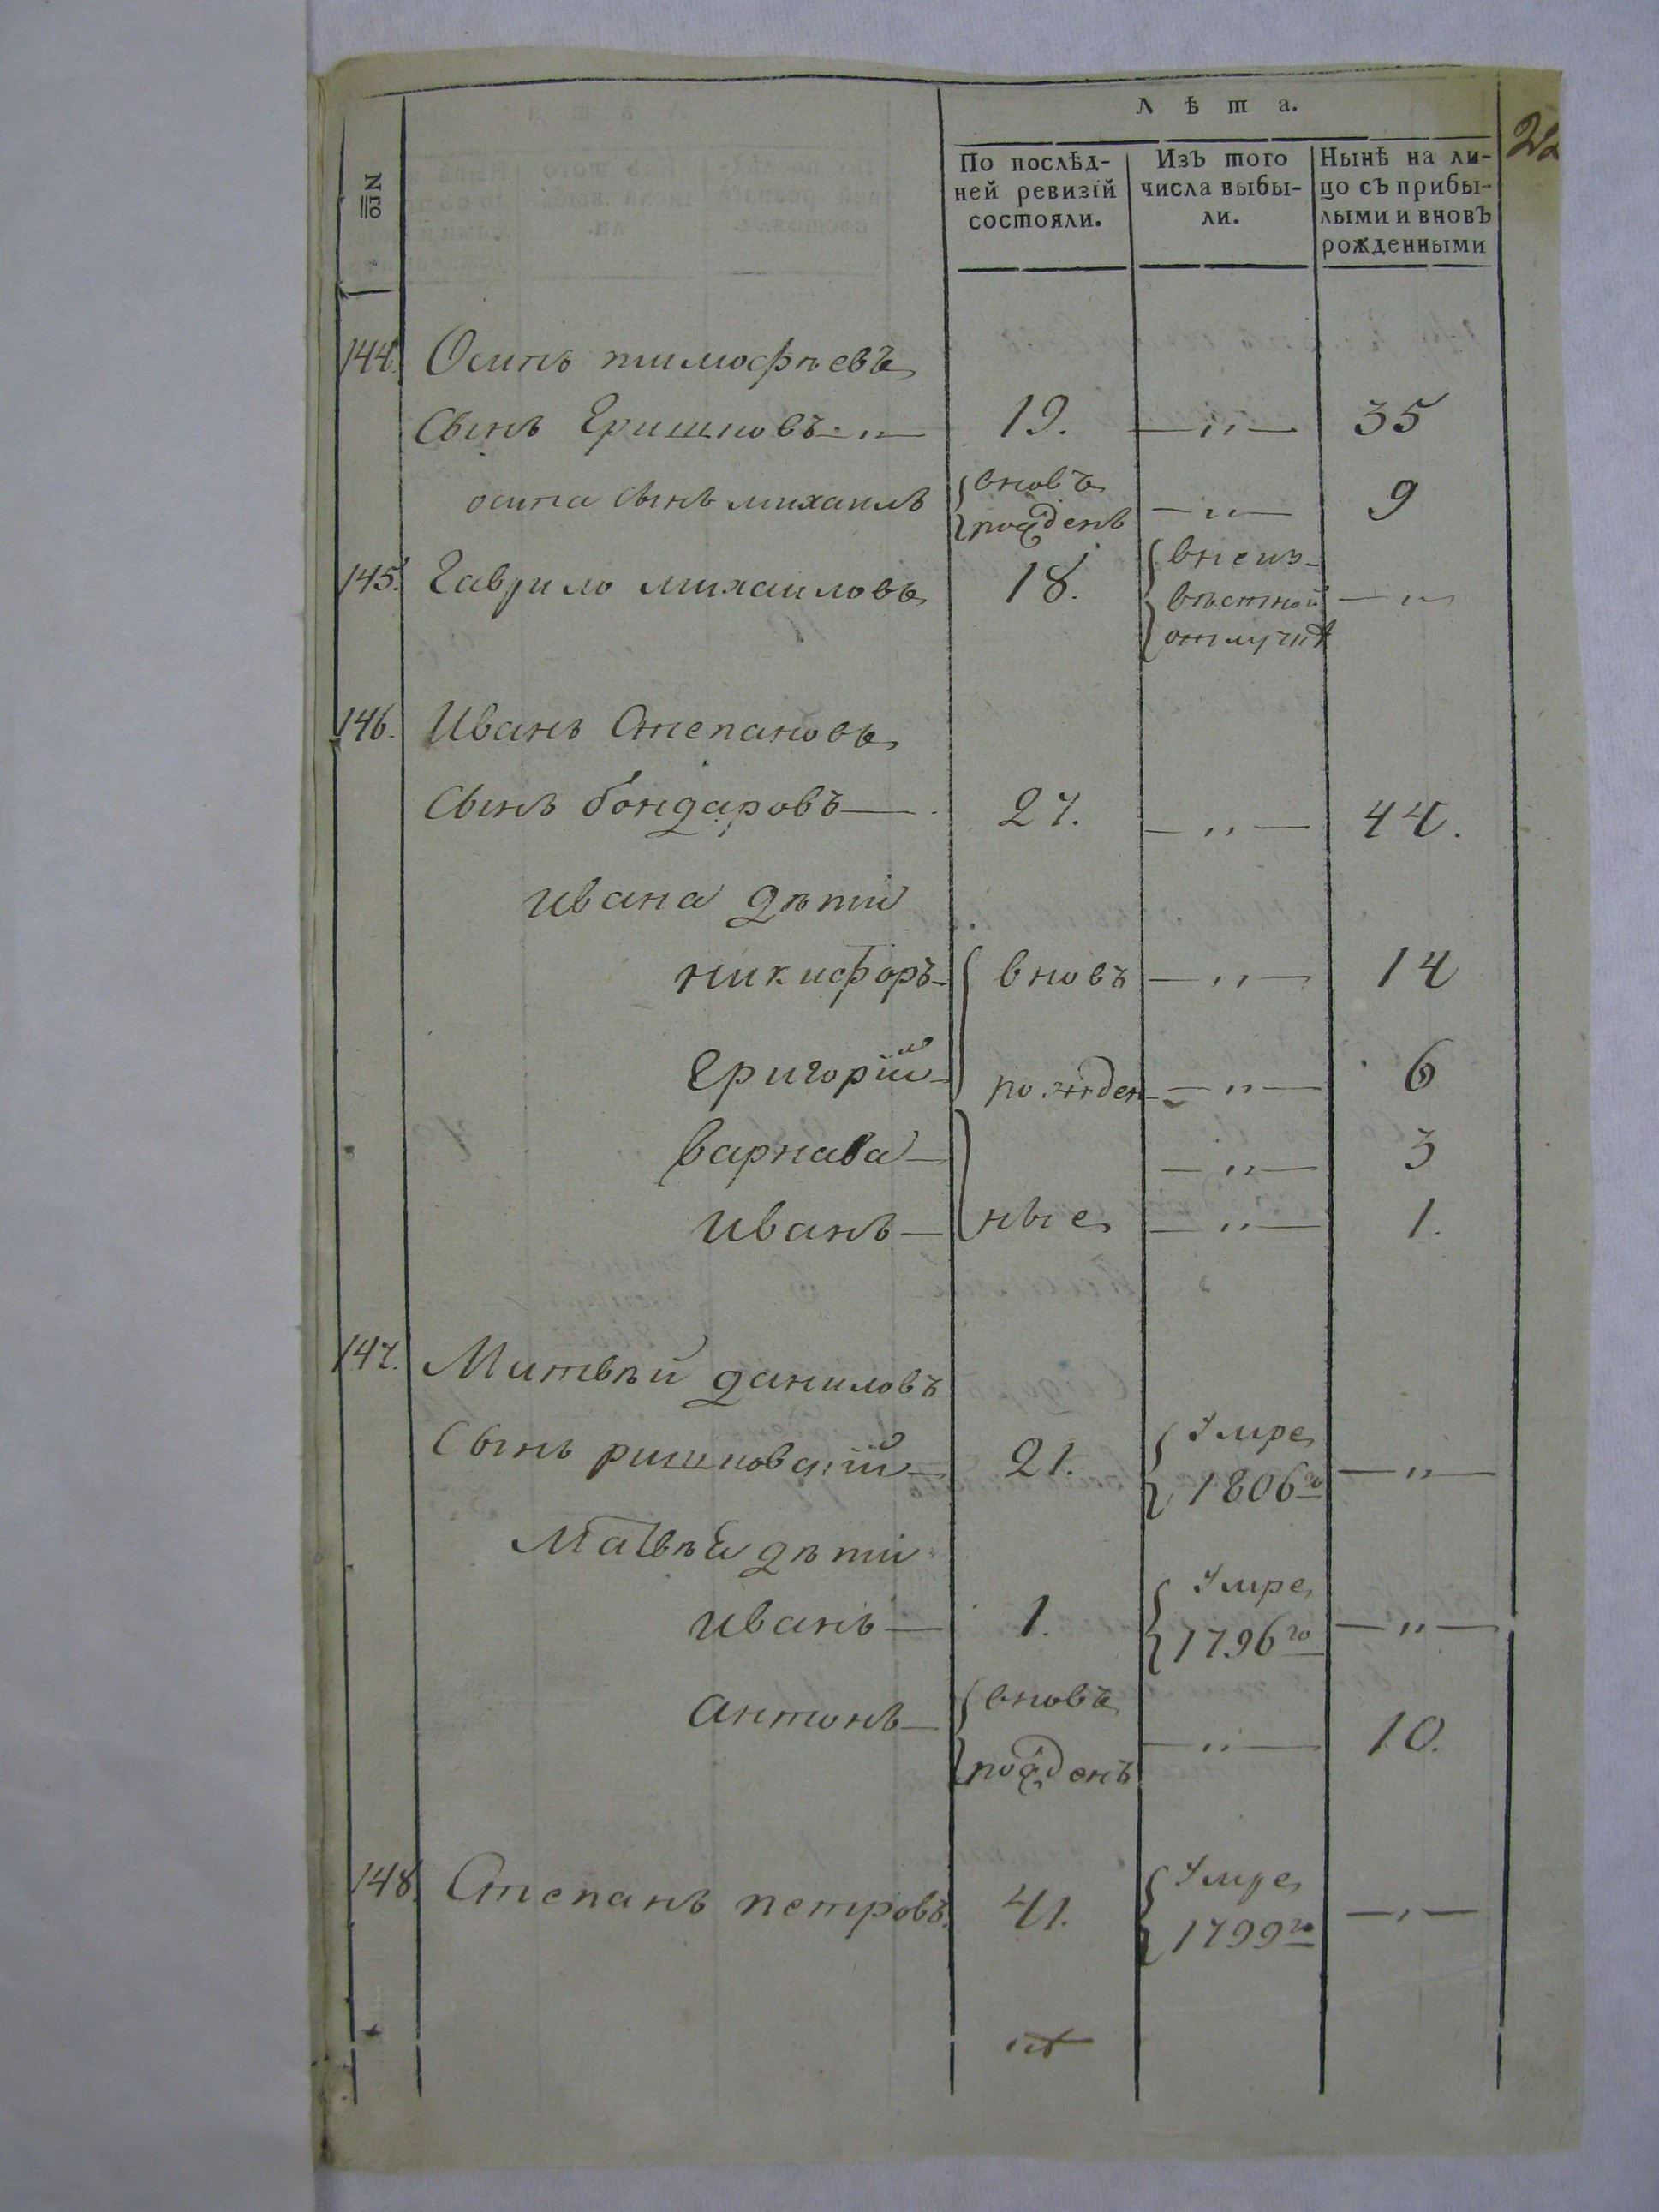 Л ѣ т а.
№
По послѣд-
ней ревизїй
состояли.
Изъ того
числа выбы-
ли.
Нынѣ на ли-
цо съ прибы-
лыми и вновь
рожденными
144. Осипъ тимофѣевъ
Сынъ Гришковъ 19. —„— 35
осипа сынъ михаилъ вновъ рожденъ —„— 9
145. Гаврило михаиловъ 18. внеиз-
вѣстной —„—
отлучкѣ
146. Иванъ Степановъ
Сынъ бондаровъ— 27. —„— 44.
ивана дѣти
никифоръ— вновъ —„— 14
Григорїй— рожден- —„— 6
варнава— —„— 3
иванъ— ные —„— 1.
147. Митвѣй даниловъ
Сынъ 21. умре
1806го —„—
Матвѣя дѣти
иванъ— 1. умре
1796го —„—
антонъ— вновъ
рожденъ —„— 10.
148. Степанъ петровъ 41. умре
1799го —„—